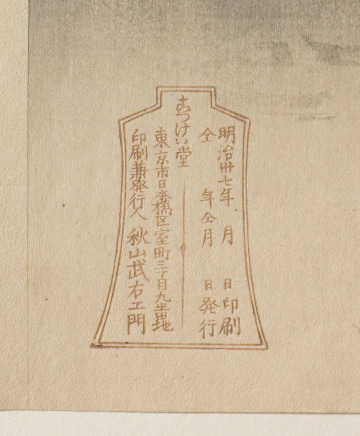 明治卅七年 月 日印刷
仝 年仝月 日発行
こつけい堂
東京市日本橋区室町三丁目九番地
印刷兼発行人 秋山武右エ門